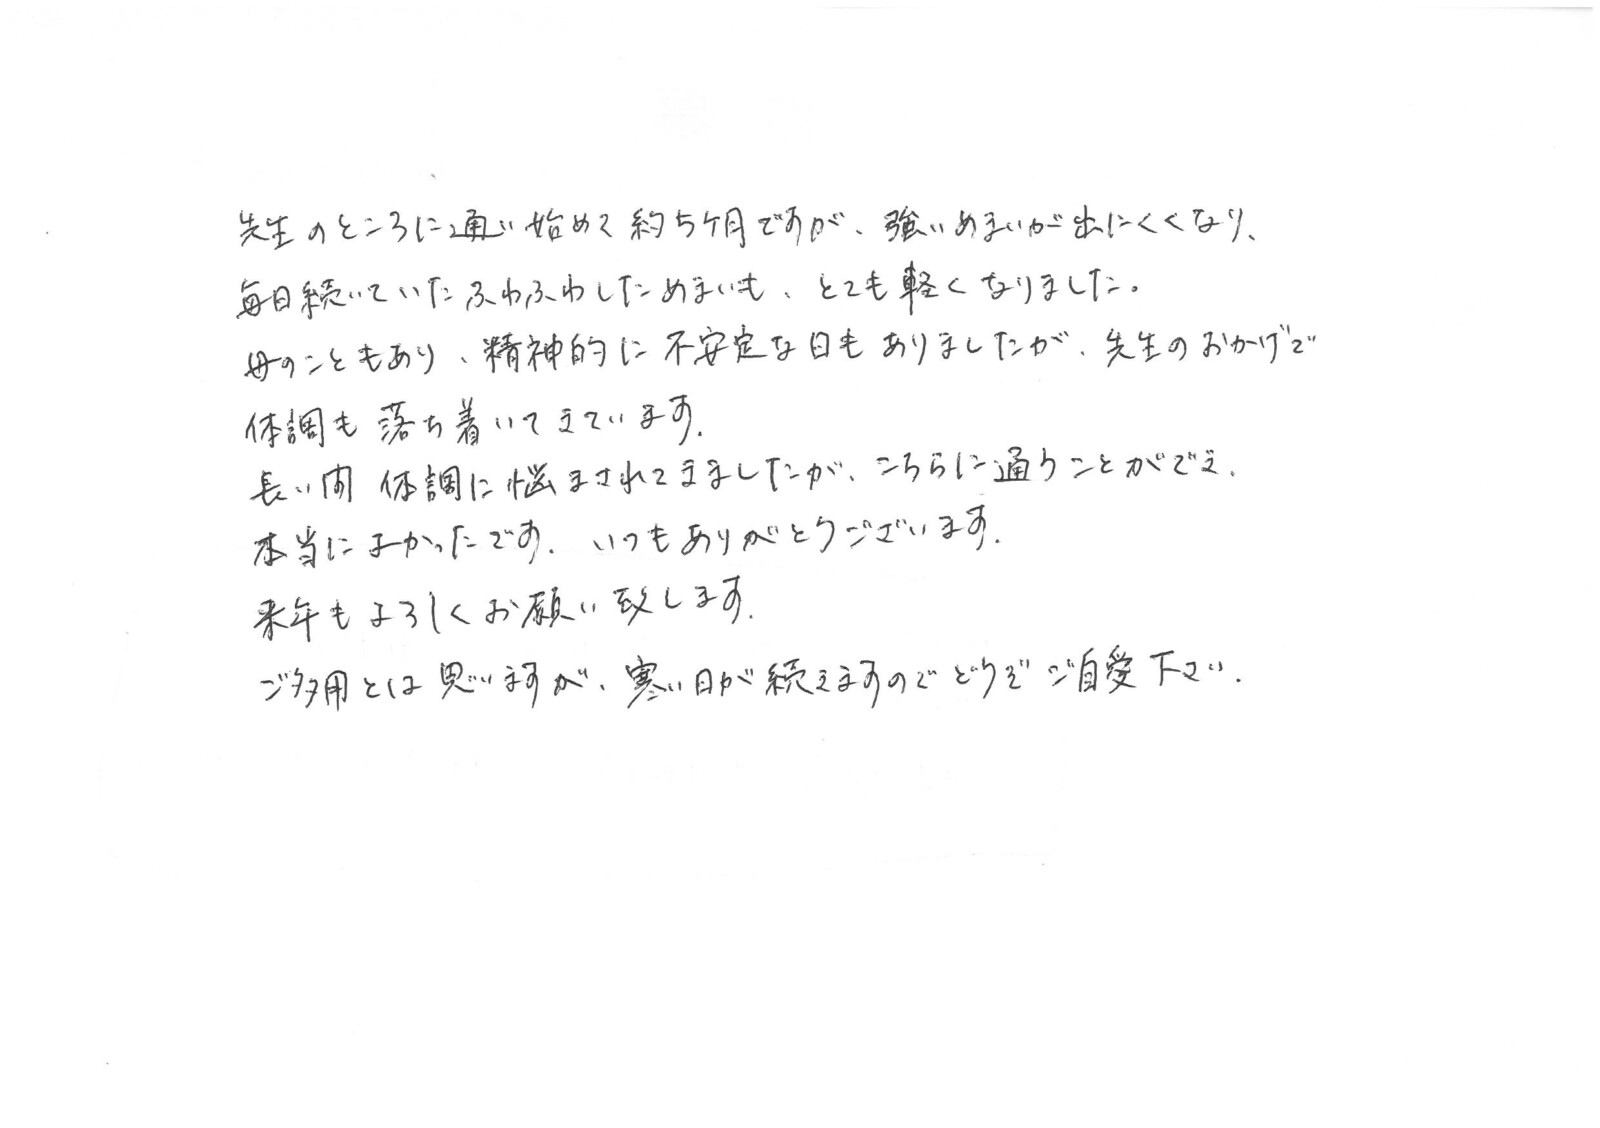 先生のところに通い始めて約5ケ月ですが、強いめまいが出にくくなり、
毎日続いていたふわふわしためまいも、とても軽くなりました。
母のこともあり、精神的に不安定な日もありましたが、先生のおかげで
体調も落ち着いてきています。
長い間 体調に悩まされてきましたが、こちらに通うことができ、
本当によかったです。いつもありがとうございます。
来年もよろしくお願い致します。
ご多用とは思いますが、寒い日が続きますのでどうぞご自愛下さい。